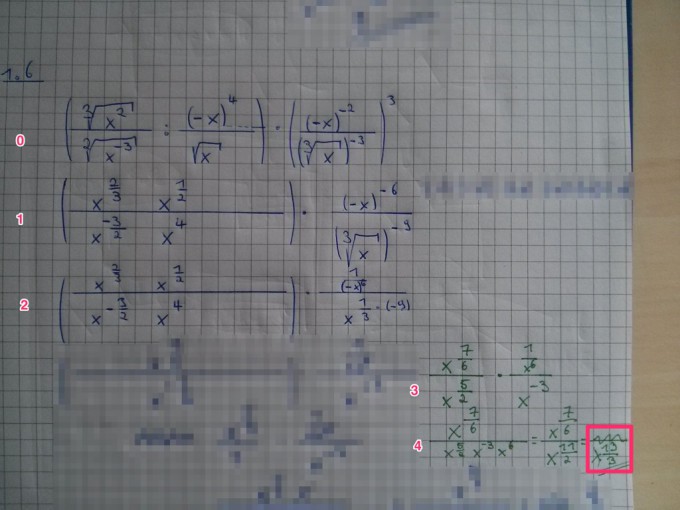 1.6
0 ( ∛(x²) / ²√(x⁻³) : (-x)⁴ / √x ) · ( (-x)⁻² / (∛x)⁻³ )³
1 ( x^(2/3) x^(1/2) / x^(-3/2) x⁴ ) · (-x)⁻⁶ / (∛x)⁻⁹
2 ( x^(2/3) x^(1/2) / x^(-3/2) x⁴ ) · 1/(-x)⁶ / x^(1/3 · (-9))
3 x^(7/6) / x^(5/2) · 1/x⁶ / x⁻³
4 x^(7/6) / x^(5/2) x⁻³ x⁶ = x^(7/6) / x^(11/2) = x^(13/3)